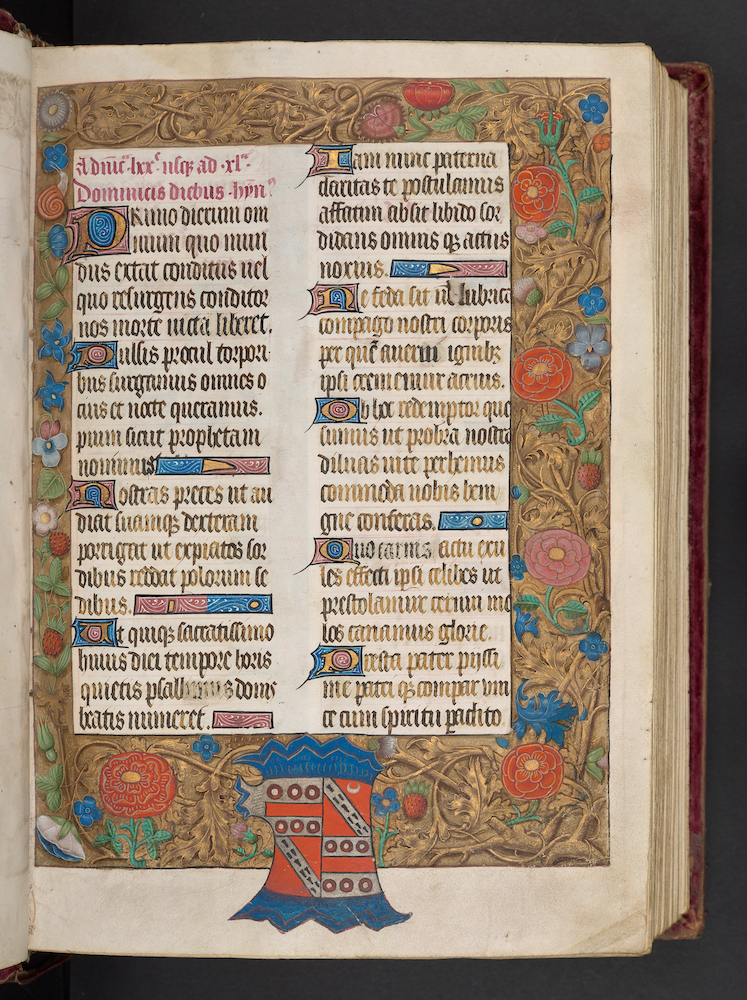 Ad dnic̄ lxxͤ usq̢ ad xlͫ
Dominicis diebus hyn̄
PRimo dierum om
nium quo mun
dus extat conditus uel
quo resurgens conditor
nos morte uicta liberet.
Pulsis procul torpori
bus surgamus omnes o
cius et nocte queramus.
pium sicut prophetam
nouimus
Nostras preces ut au
diat suamq̢ dexteram
porrigat ut expiatos sor
dibus reddat polorum se
dibus.
Ut quiq̢ sacratissimo
huius diei tempore horis
quietis psallimus donis
beatis muneret.
Iam nunc paterna
claritas te postulamus
affatim absit libido sor
didans omnis q̢ actus
noxius.
Ne feda sit ul lubrica
compago nostri corporis
per quē auerni ignibꝫ
ipsi crememur acrius.
Ob hoc redemptor que
sumus ut probra nostra
diluas uite perhennis
commoda nobis beni
gne conferas.
Quo carnis actu exu
les effecti ipsi celibes ut
prestolamur cernui me
los canamus glorie.
Presta pater pijssi
me patri q̢ compar vni
ce cum spiritu paclito